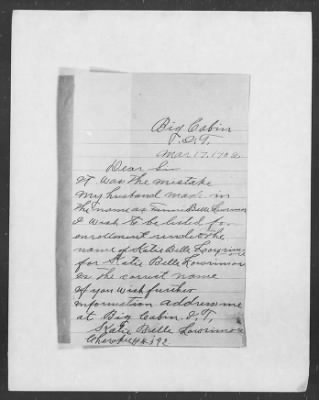 Big Cabin
I.T.
Mar 17. 190
Dear Sir
It was the mistake
my husband made in
the name as Belle
I wish to be listed for
enrollment under the
name of Katie Belle
for Katie Belle Lowrimore
es the correct name
if you wish further
information address me
at Big Cabin I.T,
Katie Belle Lowrimore
Cherokee 192